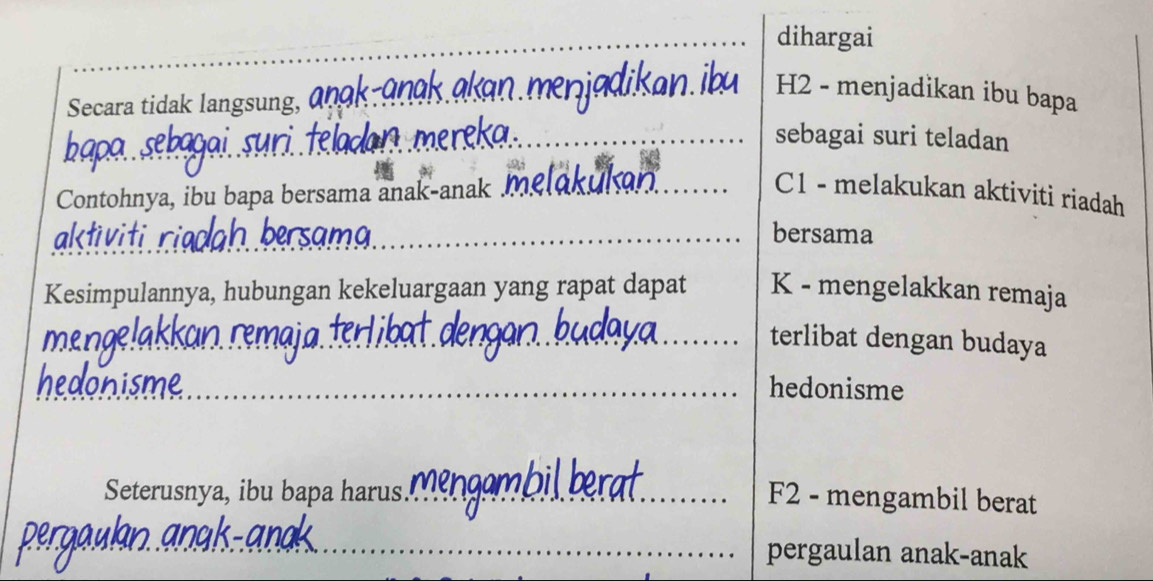 dihargai
Secara tidak langsung, anak-anak akan menjadikan ibu
bapa sebagai suri teladan mereka.
H2 - menjadikan ibu bapa
sebagai suri teladan
Contohnya, ibu bapa bersama anak-anak melakukan
aktiviti riadah bersama
C1 - melakukan aktiviti riadah
bersama
Kesimpulannya, hubungan kekeluargaan yang rapat dapat
mengelakkan remaja terlibat dengan budaya
hedonisme
K - mengelakkan remaja
terlibat dengan budaya
hedonisme
Seterusnya, ibu bapa harus mengambil berat
pergaulan anak-anak
F2 - mengambil berat
pergaulan anak-anak